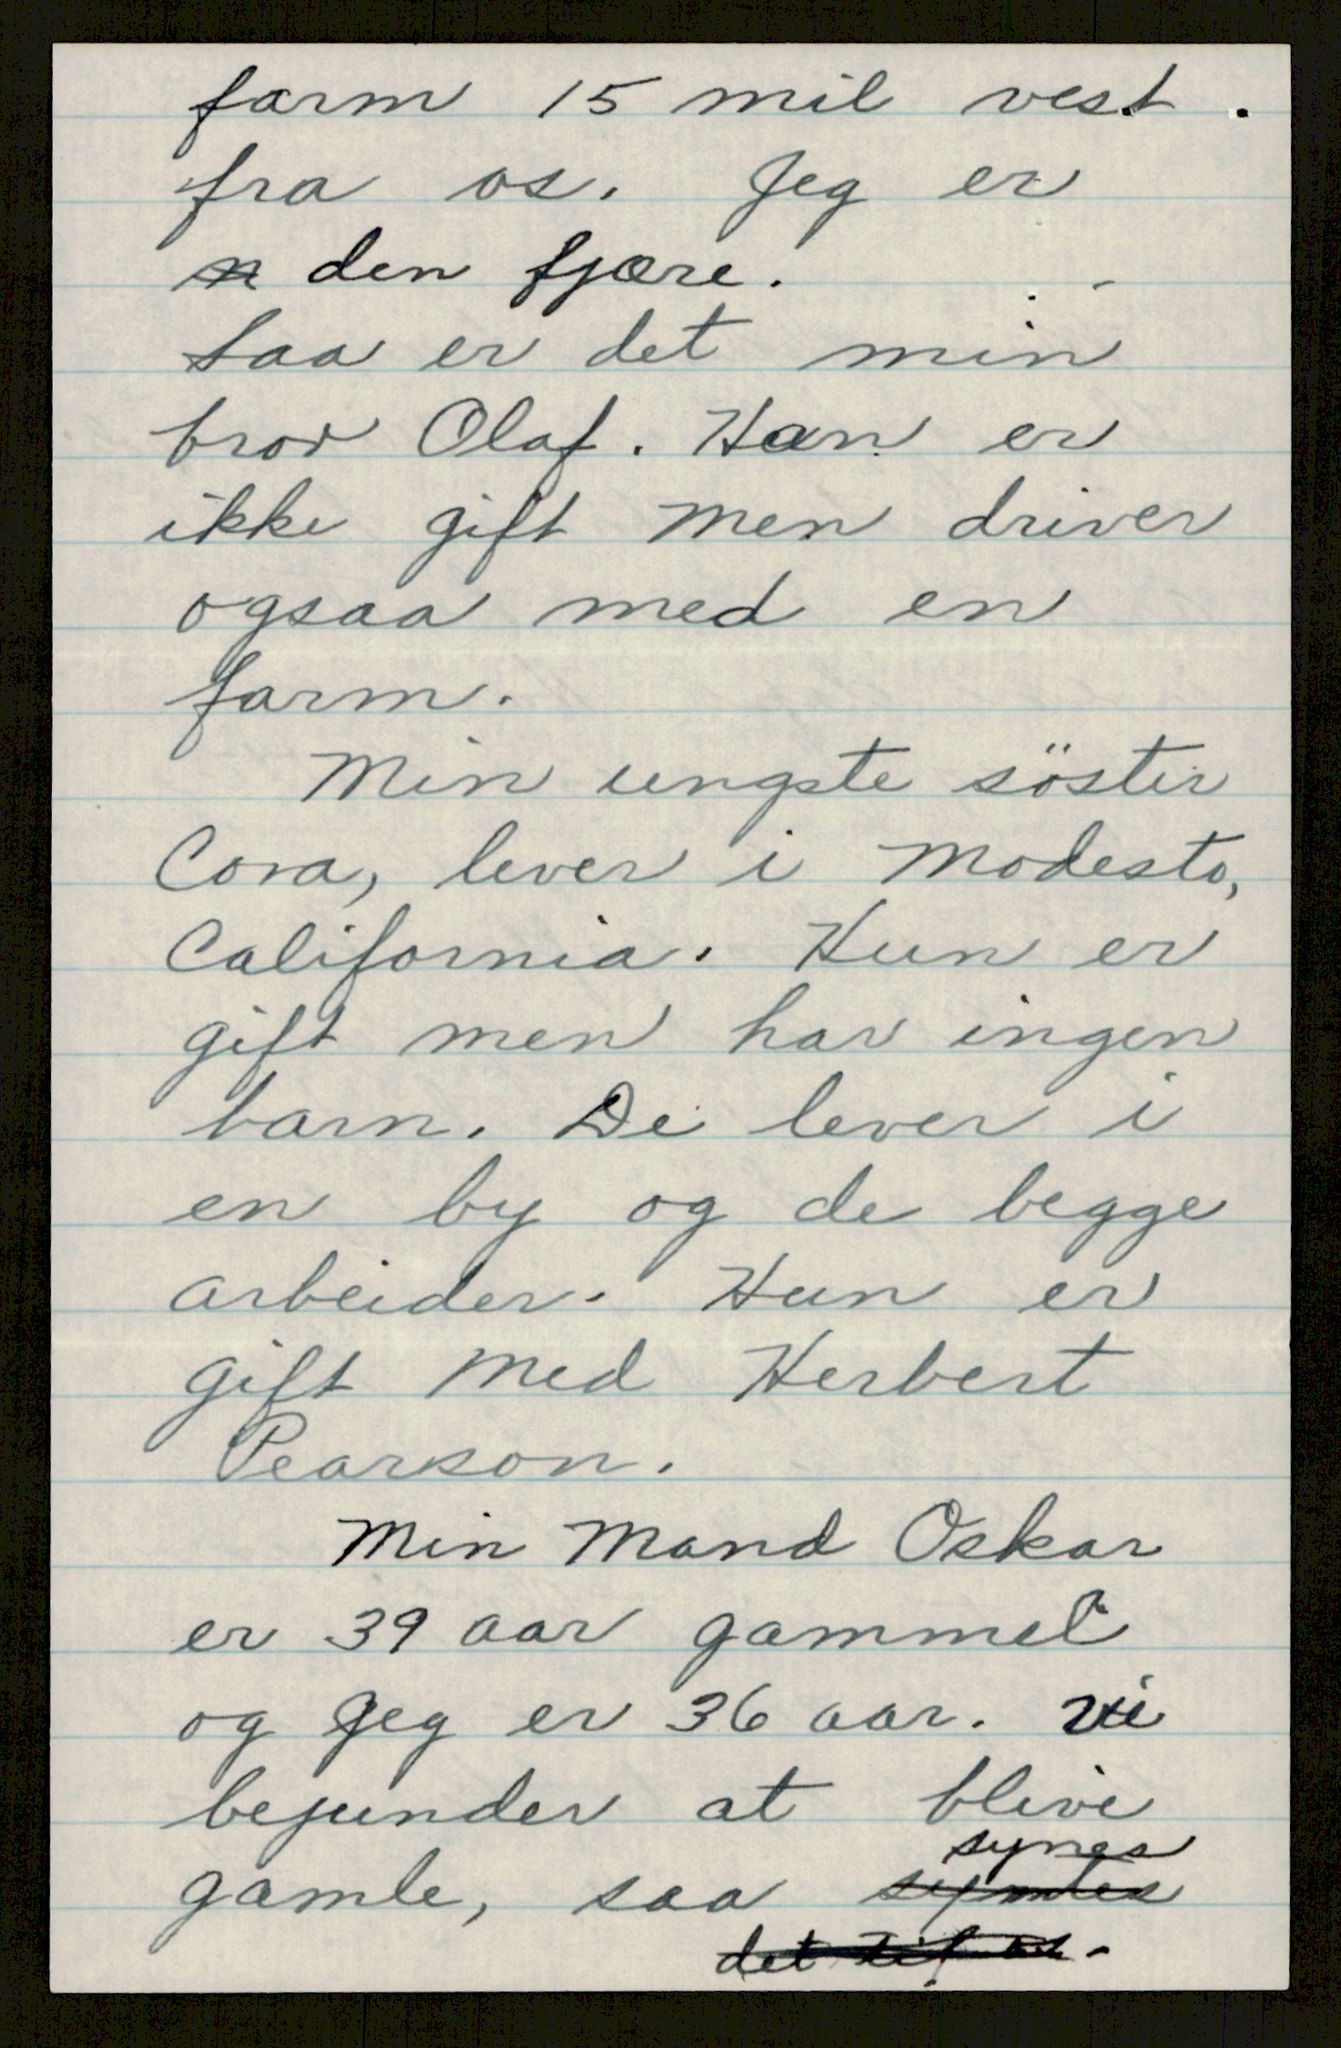 farm 15 mil vest.
fra os. Jeg er
n den fjære.
Saa er det min
bror Olaf. Han er
ikke gift men driver
ogsaa med en
farm.
Min ungste söster
Cora, lever i Modesto,
California. Hun er
gift men har ingen
barn. De lever i
en by og de begge
arbeider. Hun er
gift med Herbert
Pearson.
Min Mand Oskar
er 39 aar gammel
og Jeg er 36 aar. Vi
bejunder at blive
synes
gamle, saa syndes
det til os.